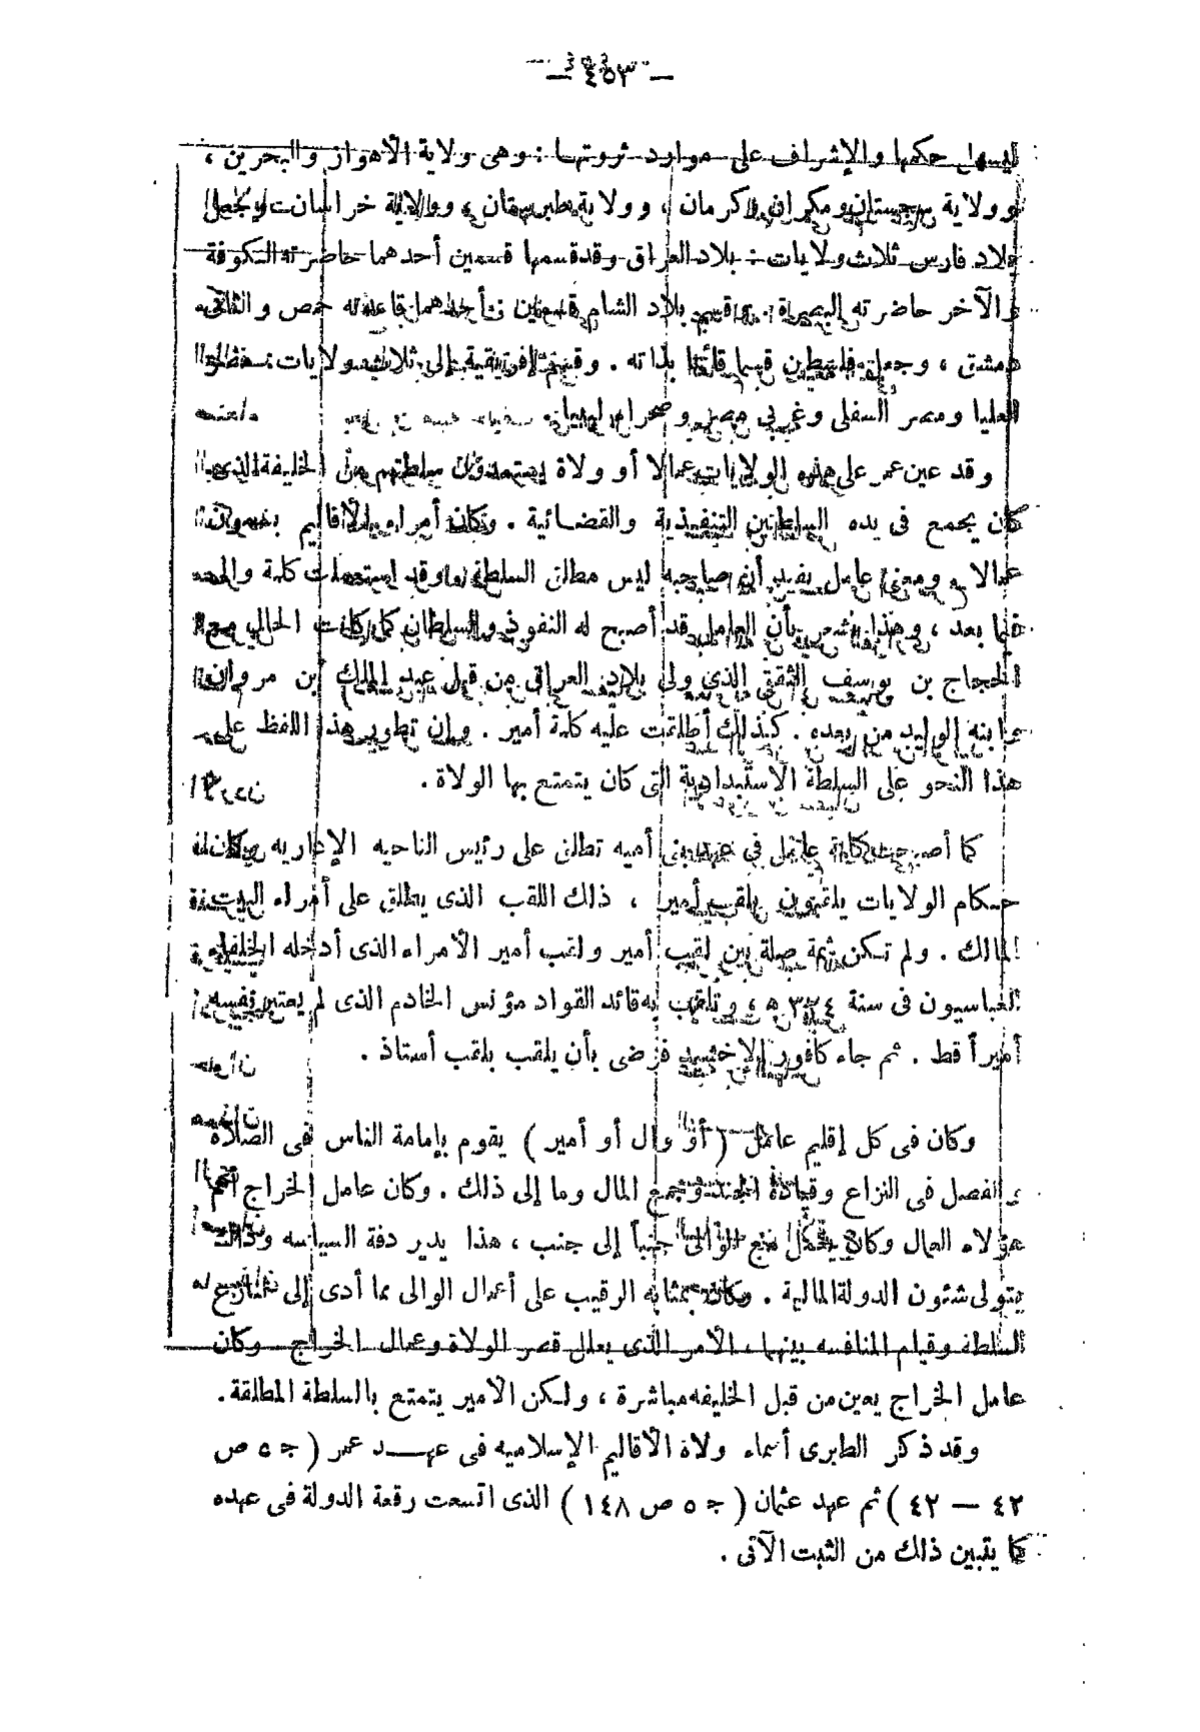 — ٤٥٣ —
ليسهل حكمها والإشراف على موارد ثروتها : وهى ولاية الأهواز والبحرين ،
وولاية سجستان ومكران وكرمان ، وولاية طبرستان ، وولاية خراسان وجعل
بلاد فارس ثلاث ولايات : بلاد العراق وقد قسمها قسمين أحدهما حاضرته الكوفة
والآخر حاضرته البصرة . وقسم بلاد الشام قسمين أحدهما قاعدته حمص والثانى
دمشق ، وجعل فلسطين قسما قائما بذاته . وقسم إفريقية إلى ثلاث ولايات : مصر
العليا ومصر السفلى وغربى مصر وصحراء ليبيا .
وقد عين عمر على هذه الولايات عمالا أو ولاة يستمدون سلطتهم من الخليفة الذى
كان يجمع فى يده السلطتين التنفيذية والقضائية . وكان أمراء الأقاليم يسمون
عمالا ومعنى عامل يفيد أن صاحبه ليس مطلق السلطة وقد استعملت كلمة والى
فيما بعد ، وهذا يشعر بأن العامل قد أصبح له النفوذ والسلطان كما كانت الحال مع
الحجاج بن يوسف الثقفى الذى ولى بلاد العراق من قبل عبد الملك بن مروان
وابنه الوليد من بعده . كذلك أطلقت عليه كلمة أمير . وإن تطور هذا اللفظ على
هذا النحو على السلطة الاستبدادية التى كان يتمتع بها الولاة .
كما أصبحت كلمة عامل في عهد بنى أميه تطلق على رئيس الناحيه الإداريه وكان
حكام الولايات يلقبون بلقب أمير ، ذلك اللقب الذى يطلق على أمراء البيت
المالك . ولم تكن ثمة صلة بين لقب أمير ولقب أمير الأمراء الذى أدخله الخلفاء
العباسيون فى سنة ٣٢٤ ه ، وتلقب به قائد القواد مؤنس الخادم الذى لم يعتبر نفسه
أميراً قط . ثم جاء كافور الإخشيد فرضى بأن يلقب بلقب أستاذ .
وكان فى كل إقليم عامل ( أو وال أو أمير ) يقوم بإمامة الناس فى الصلاة
والفصل فى النزاع وقيادة الجند وجمع المال وما إلى ذلك . وكان عامل الخراج أهم
هؤلاء العمال وكان يعمل مع الوالى جنباً إلى جنب ، هذا يدير دفة السياسه وذاك
يتولى شئون الدولة المالية . وكان بمثابه الرقيب على أعمال الوالى مما أدى إلى تنازع
السلطه وقيام المنافسه بينهما ، الأمر الذى يعلل قصر الولاة وعمال الخراج وكان
عامل الخراج يعين من قبل الخليفه مباشرة ، ولكن الامير يتمتع بالسلطة المطلقة .
وقد ذكر الطبرى أسماء ولاة الأقاليم الإسلاميه فى عهد عمر ( ج ٥ ص
٤٢ — ٤٢ ) ثم عهد عثمان ( ج ٥ ص ١٤٨ ) الذى اتسعت رقعة الدولة فى عهده
كما يتبين ذلك من الثبت الآتى .